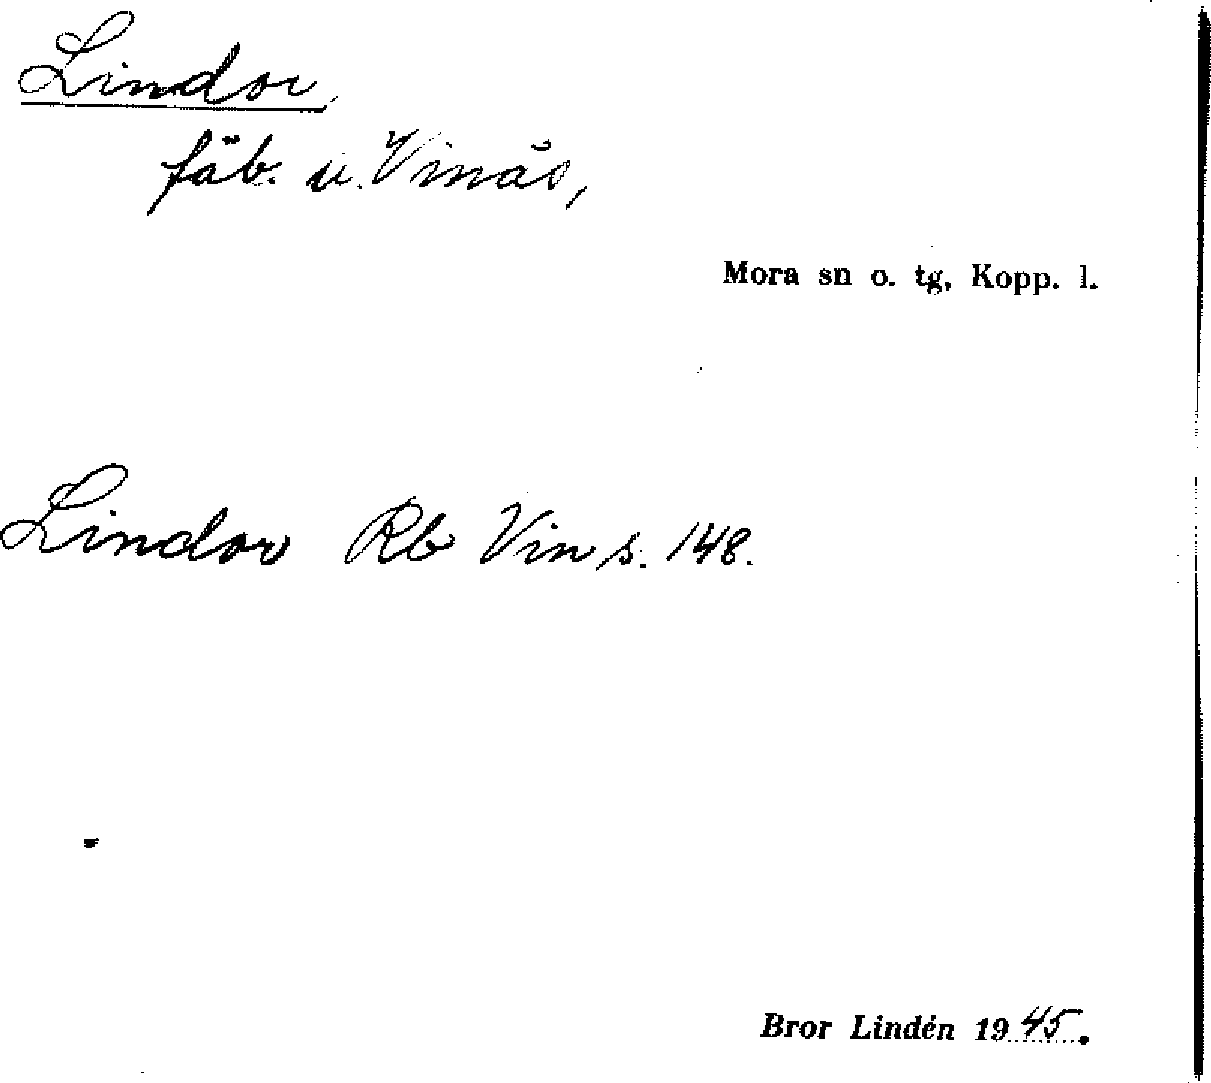 Lindor,
fäb. u. Vinäs,
Mora sn o. tg, Kopp. l.
Lindor Rb Vin s. 148.
Bror Lindén 1945.